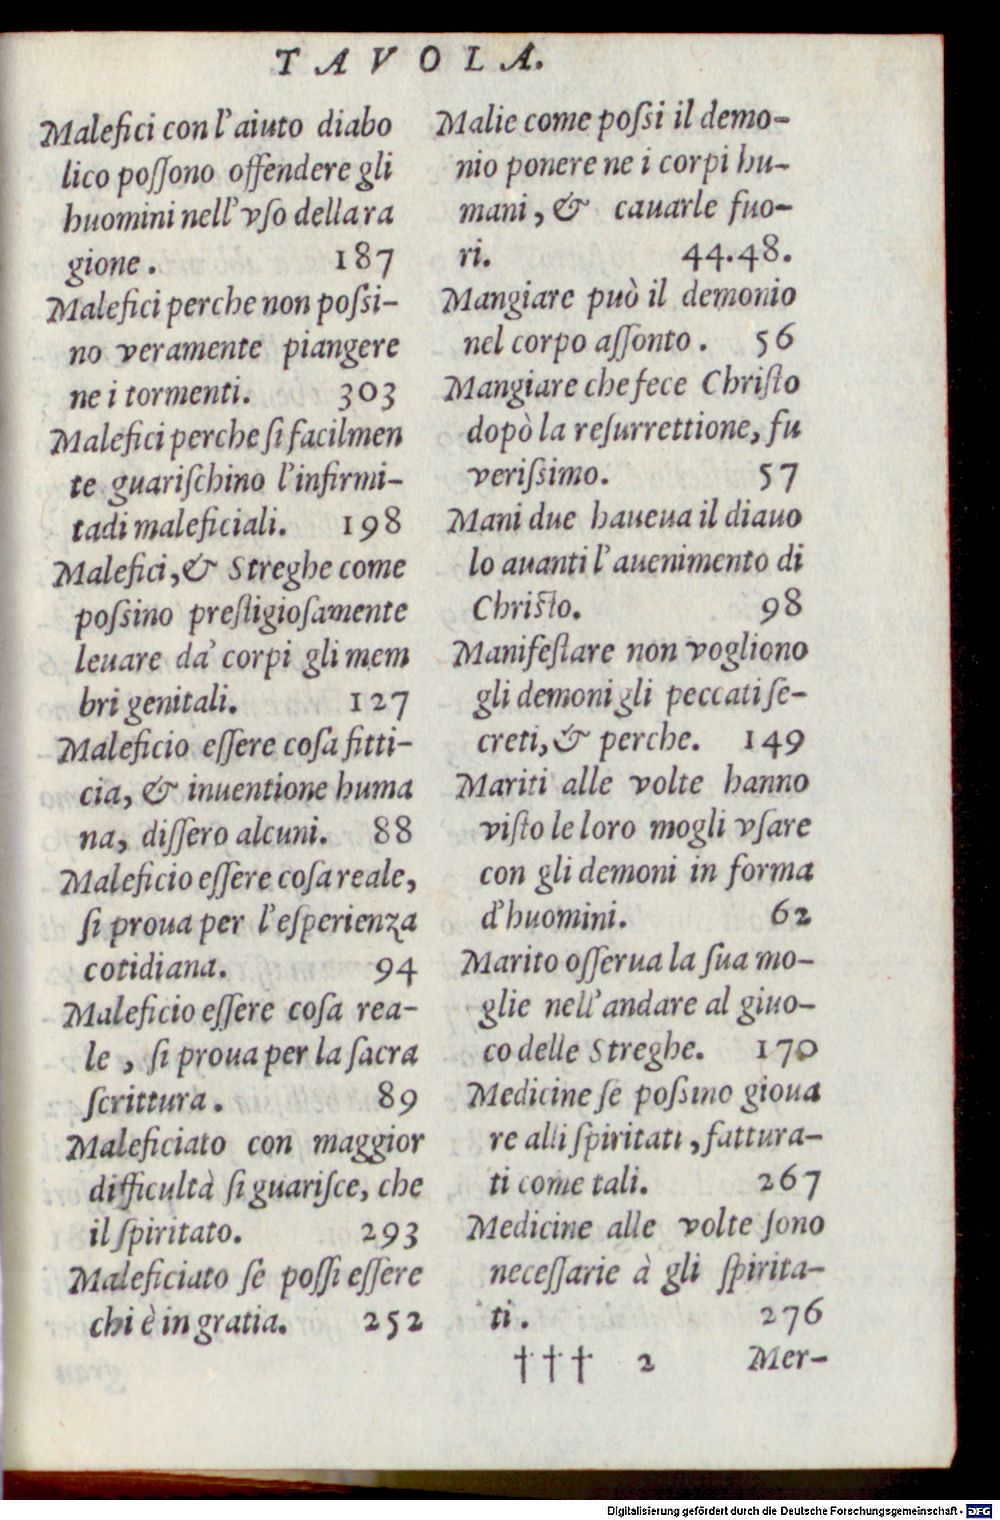 TAVOLA.
Malefici con l'aiuto diabo
lico possono offendere gli
huomini nell'vso della ra
gione. 187
Malefici perche non possi-
no veramente piangere
ne i tormenti. 303
Malefici perche si facilmen
te guarischino l'infirmi-
tadi maleficiali. 198
Malefici, & Streghe come
possino prestigiosamente
leuare da' corpi gli mem
bri genitali. 127
Maleficio essere cosa fitti-
cia, & inuentione huma
na, dissero alcuni. 88
Maleficio essere cosa reale,
si proua per l'esperienza
cotidiana. 94
Maleficio essere cosa rea-
le, si proua per la sacra
scrittura. 89
Maleficiato con maggior
difficultà si guarisce, che
il spiritato. 293
Maleficiato se possi essere
chi è in gratia. 252
Malie come possi il demo-
nio ponere ne i corpi hu-
mani, & cauarle fuo-
ri. 44.48.
Mangiare può il demonio
nel corpo assonto. 56
Mangiare che fece Christo
dopò la resurrettione, fu
verissimo. 57
Mani due haueua il diauo
lo auanti l'auenimento di
Christo. 98
Manifestare non vogliono
gli demoni gli peccati se-
creti, & perche. 149
Mariti alle volte hanno
visto le loro mogli vsare
con gli demoni in forma
d'huomini. 62
Marito osserua la sua mo-
glie nell'andare al giuo-
co delle Streghe. 170
Medicine se possino gioua
re alli spiritati, fattura-
ti come tali. 267
Medicine alle volte sono
necessarie à gli spirita-
ti. 276
††† 2 Mer-
Digitalisierung gefördert durch die Deutsche Forschungsgemeinschaft - DFG